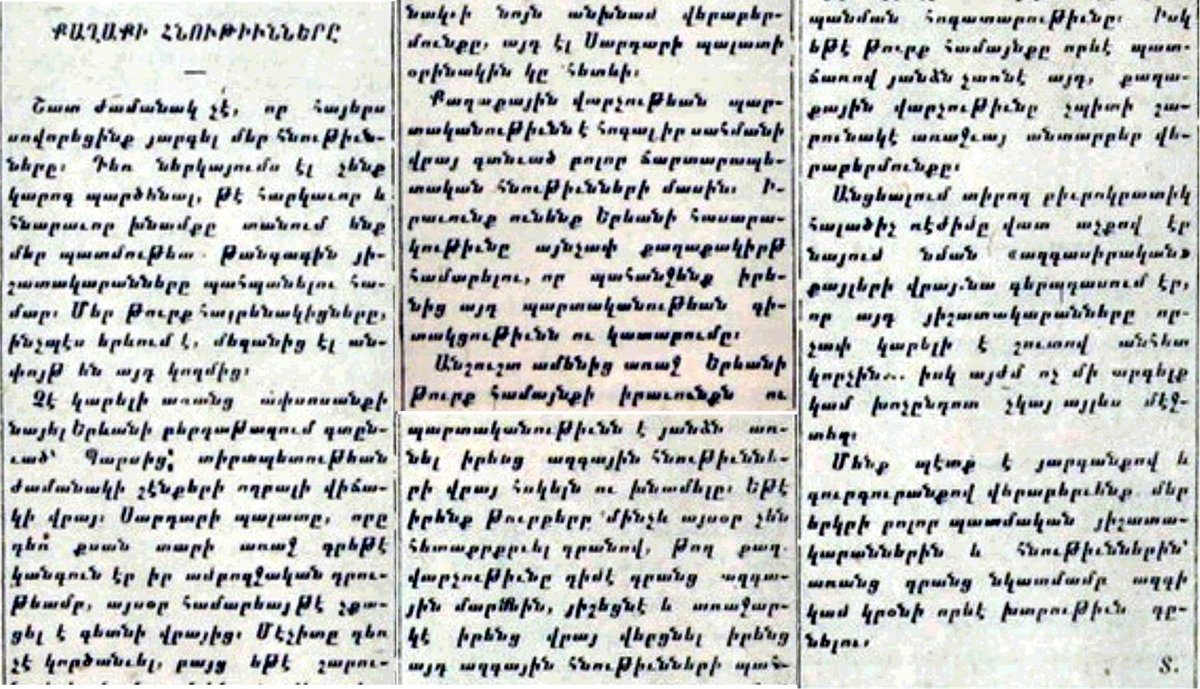 ՔԱՂԱՔԻ ՀՆՈՒԹԻՒՆՆԵՐԸ
Շատ ժամանակ չէ, որ հայերս
սովորեցինք յարգել մեր հնութիւն-
ները։ Դեռ ներկայումս էլ չենք
կարող պարծենալ, թէ հարկաւոր և
հնարաւոր խնամքը տանում ենք
մեր պատմութեա թանգագին յի-
շատակարանները պահպանելու հա-
մար։ Մեր թուրք հայրենակիցները,
ինչպէս երևում է, մեզանից էլ ան-
փոյթ են այդ կողմից։
Չէ կարելի առանց ափսոսանքի
նայել Երևանի բերդաթաղում գտըն-
ւած՝ Պարսից տիրապետութեան
ժամանակի շէնքերի ողբալի վիճա-
կի վրայ։ Սարդարի պալատը, որը
դեռ քսան տարի առաջ գրեթէ
կանգուն էր իր ամբողջական դրու-
թեամբ, այսօր համարեայ թէ չքա-
ցել է գետնի վրայից։ Մէչիտը դեռ
չէ կործանւել, բայց եթէ շարու-
նակւի նոյն անխնամ վերաբեր-
մունքը, այդ էլ Սարդարի պալատի
օրինակին կը հետևի։
Քաղաքային վարչութեան պար-
տականութիւնն է հոգալ իր սահմանի
վրայ գտնւած բոլոր ճարտարապե-
տական հնութիւնների մասին։ Ի-
րաւունք ունենք Երևանի հասարա-
կութիւնը այնչափ քաղաքակիրթ
համարելու, որ պահանջենք իրե-
նից այդ պարտականութեան գի-
տակցութիւնն ու կատարումը։
Անշուշտ ամենից առաջ Երևանի
թուրք համայնքի իրաւունքն ու
պարտականութիւնն է յանձն առ-
նել իրենց ազգային հնութիւննե-
րի վրայ հսկելն ու խնամելը։ Եթէ
իրենք թուրքերը մինչև այսօր չեն
հետաքրքրւել դրանով, թող քաղ.
վարչութիւնը դիմէ դրանց ազգա-
յին մարմնին, յիշեցնէ և առաջար-
կէ իրենց վրայ վերցնել իրենց
այդ ազգային հնութիւնների պահ-
պանման հոգատարութիւնը։ Իսկ
եթէ թուրք համայնքը որևէ պատ-
ճառով յանձն չառնէ այդ, քաղա-
քային վարչութիւնը չպիտի շա-
րունակէ առաջւայ անտարբեր վե-
րաբերմունքը։
Անցեալում տիրող բիւրոկրատիկ
հալածիչ ռէժիմը վատ աչքով էր
նայում նման «ազգասիրական»
քայլերի վրայ.նա գերադասում էր,
որ այդ յիշատակարանները որ-
չափ կարելի է շուտով անհետ
կորչին... իսկ այժմ ոչ մի արգելք
կամ խոչընդոտ չկայ այլևս մէջ-
տեղ։
Մենք պէտք է յարգանքով և
գուրգուրանքով վերաբերւենք մեր
երկրի բոլոր պատմական յիշատա-
կարաններին և հնութիւններին՝
առանց դրանց նկատմամբ ազգի
կամ կրօնի որևէ խտրութիւն դը-
նելու։
Տ.